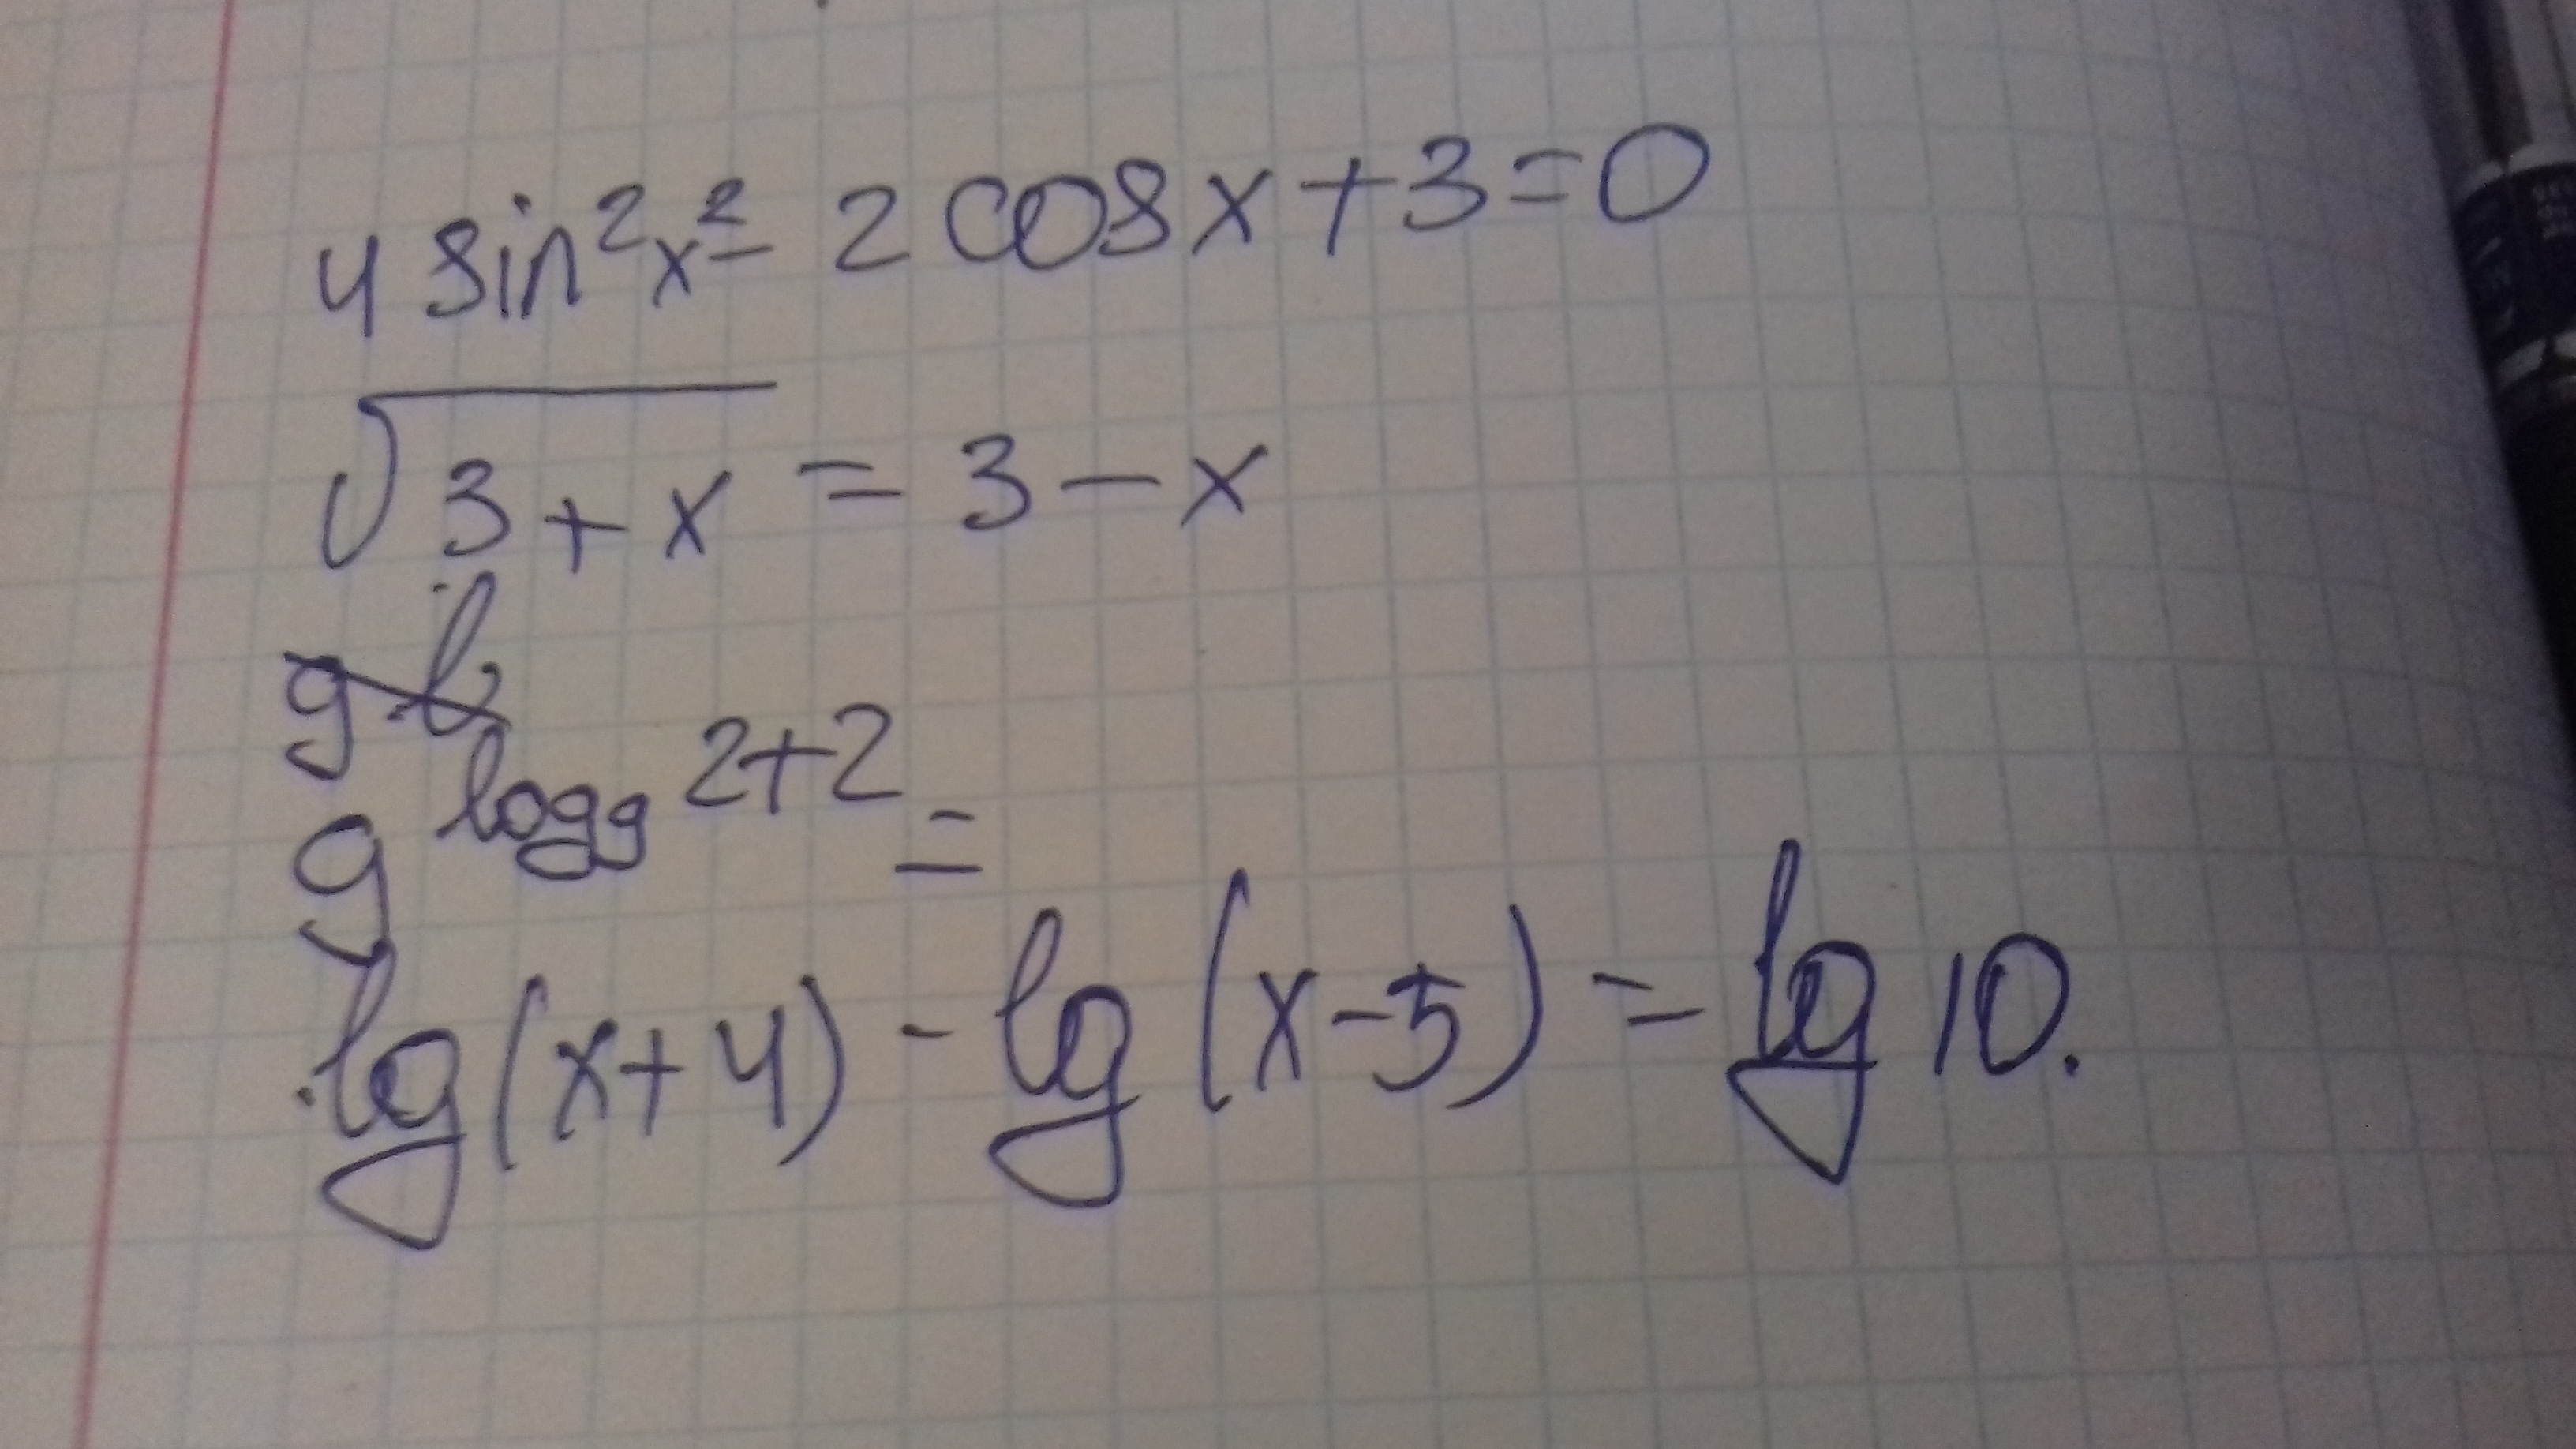 4 sin²x² - 2 cosx + 3 = 0
√(3 + x) = 3 - x
9^(log₉ 2+2) =
lg(x+4) - lg(x-5) = lg 10.